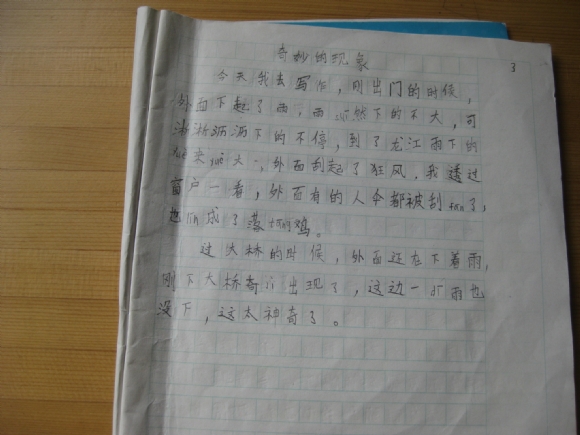 奇妙的现象
3
今天我去写作,刚出门的时候,
外面下起了雨,雨虽然下的不大,可
淅淅沥沥下的不停,到了龙江雨下的
越来越大,外面刮起了狂风,我透过
窗户一看,外面有的人伞都被刮坏了,
他们成了落汤鸡。
过大桥的时候,外面还在下着雨,
刚下大桥奇 出现了,这边一 雨也
没下,这太神奇了。